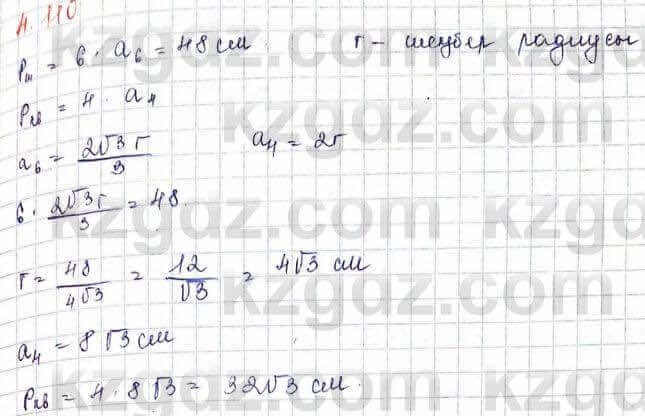 4.110
Pш = 6 · a₆ = 48 см    r – шеңбер радиусы
Pкв = 4 · a₄
a₆ = 2√3 r / 3    a₄ = 2r
6 · 2√3 r / 3 = 48.
r = 48 / 4√3 = 12 / √3 = 4√3 см
a₄ = 8√3 см
Pкв = 4 · 8√3 = 32√3 см.
kzgdz.com
kzgdz.com
kzgdz.com
kzgdz.com